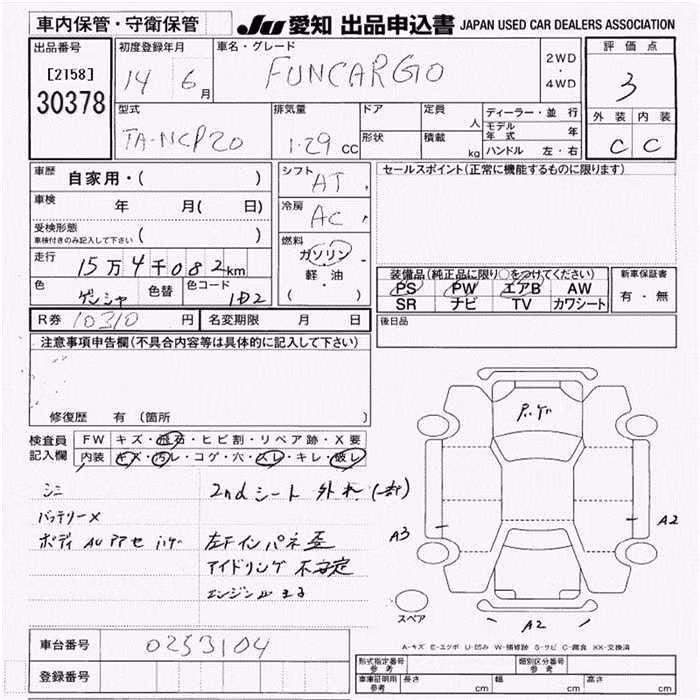 車内保管・守衛保管
JU 愛知 出品申込書 JAPAN USED CAR DEALERS ASSOCIATION
出品番号
[2158]
30378
初度登録年月
14 6月
車名・グレード
FUNCARGO
2WD
・
4WD
評価点
3
外装 内装
C C
型式
TA-NCP20
排気量
1.29 cc
ドア
形状
定員
人
積載
kg
ディーラー・並行
モデル年式 年
ハンドル 左・右
車歴
自家用・( )
車検
年 月( 日)
受検形態
車検付きのみ記入して下さい ( )
走行
15万4千082km
色
ゲンシャ
色替
色コード
1D2
R券 10310 円
名変期限 月 日
シフト
AT
冷房
AC
燃料
ガソリン
・
軽・油
( ・ )
セールスポイント(正常に機能するものに限ります)
装備品(純正品に限り○をつけてください)
PS PW エアB AW
SR ナビ TV カワシート
新車保証書
有・無
後日品
注意事項申告欄(不具合内容等は具体的に記入して下さい)
修復歴 有(箇所 )
検査員
記入欄
FW キズ・飛石・ヒビ割・リペア跡・X要
内装 キズ・汚レ・コゲ・穴・スレ・キレ・破レ
シミ
バッテリーX
ボディ AUアアセ ハゲ
2ndシート 外れ(一部)
左下インパネ歪
アイドリング 不安定
P.ゲ
A3
A2
A2
スペア
A-キズ E-エクボ U-凹み W-補修跡 S-サビ C-腐食 XX-交換済
車台番号
0253104
登録番号
形式指定番号
参考
類別区分番号
参考
車庫証明用
参考
長さ cm 幅 cm 高さ cm